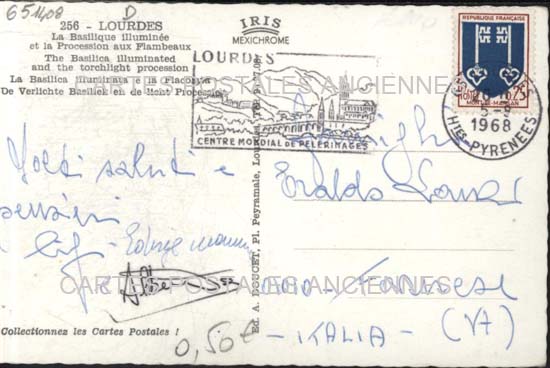 651408
D
256 - LOURDES
La Basilique illuminée
et la Procession aux Flambeaux
The Basilica illuminated
and the torchlight procession
La Basilica illuminata e la Fiaccolata
De Verlichte Basiliek en de licht Processie
IRIS
MEXICHROME
LOURDES
CENTRE MONDIAL DE PÈLERINAGES
REPUBLIQUE FRANÇAISE
0,25
MONT-DE-MARSAN
5-9
1968
Htes PYRENEES
CARTES POSTALES ANCIENNES
Molti saluti e
pensieri
Eraldo
Farnese
- ITALIA - (VA)
CARTES POSTALES ANCIENNES
Ed. A. DOUCET, Pl. Peyramale, Lourdes, Tél.
Collectionnez les Cartes Postales !
0,50€